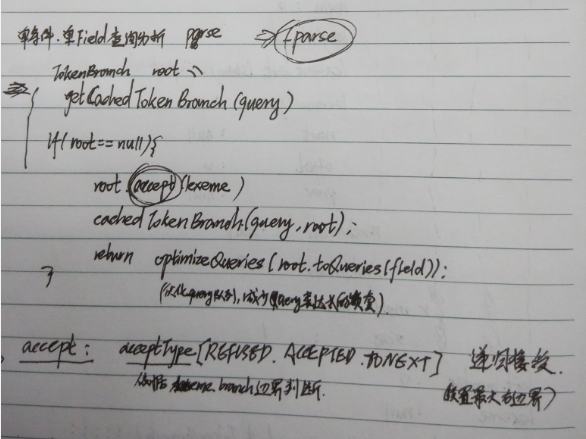 单条件.单Field查询分析 parse ⇒ fparse
TokenBranch root =
getCached Token Branch (query)
if( root == null){
root.accept(lexeme)
cached Token Branch(query, root);
return optimizeQueries(root.toQueries(field));
}
(优化query队列, 减少Query表达式的嵌套)
accept: acceptType[REFUSED. ACCEPTED. TONEXT] 递归接受.
根据 lexeme branch边界判断. (设置最大右边界)